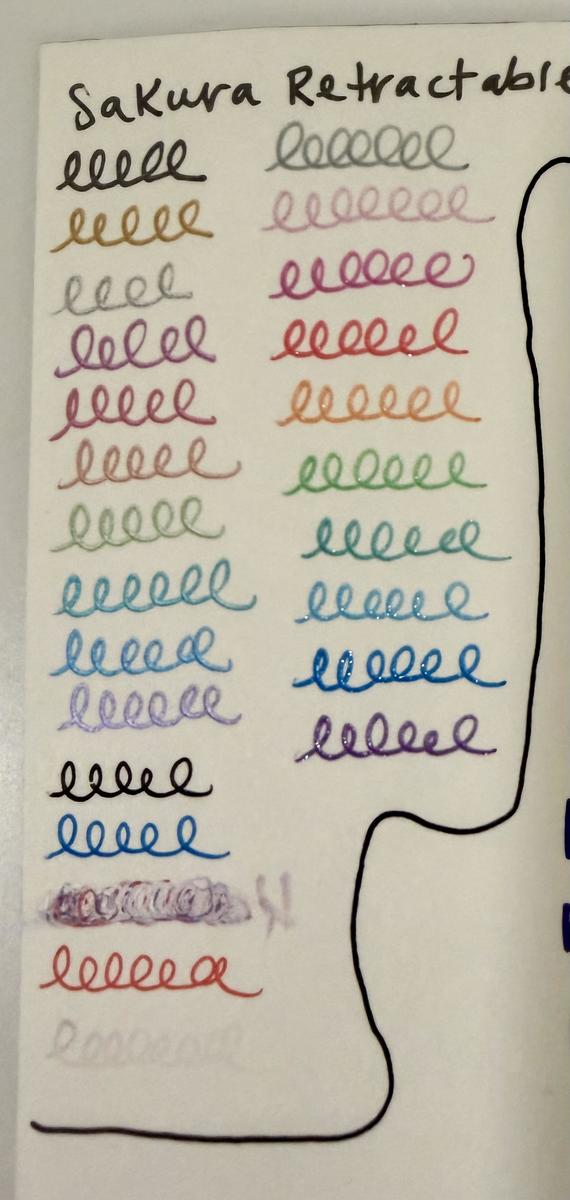 Sakura Retractable